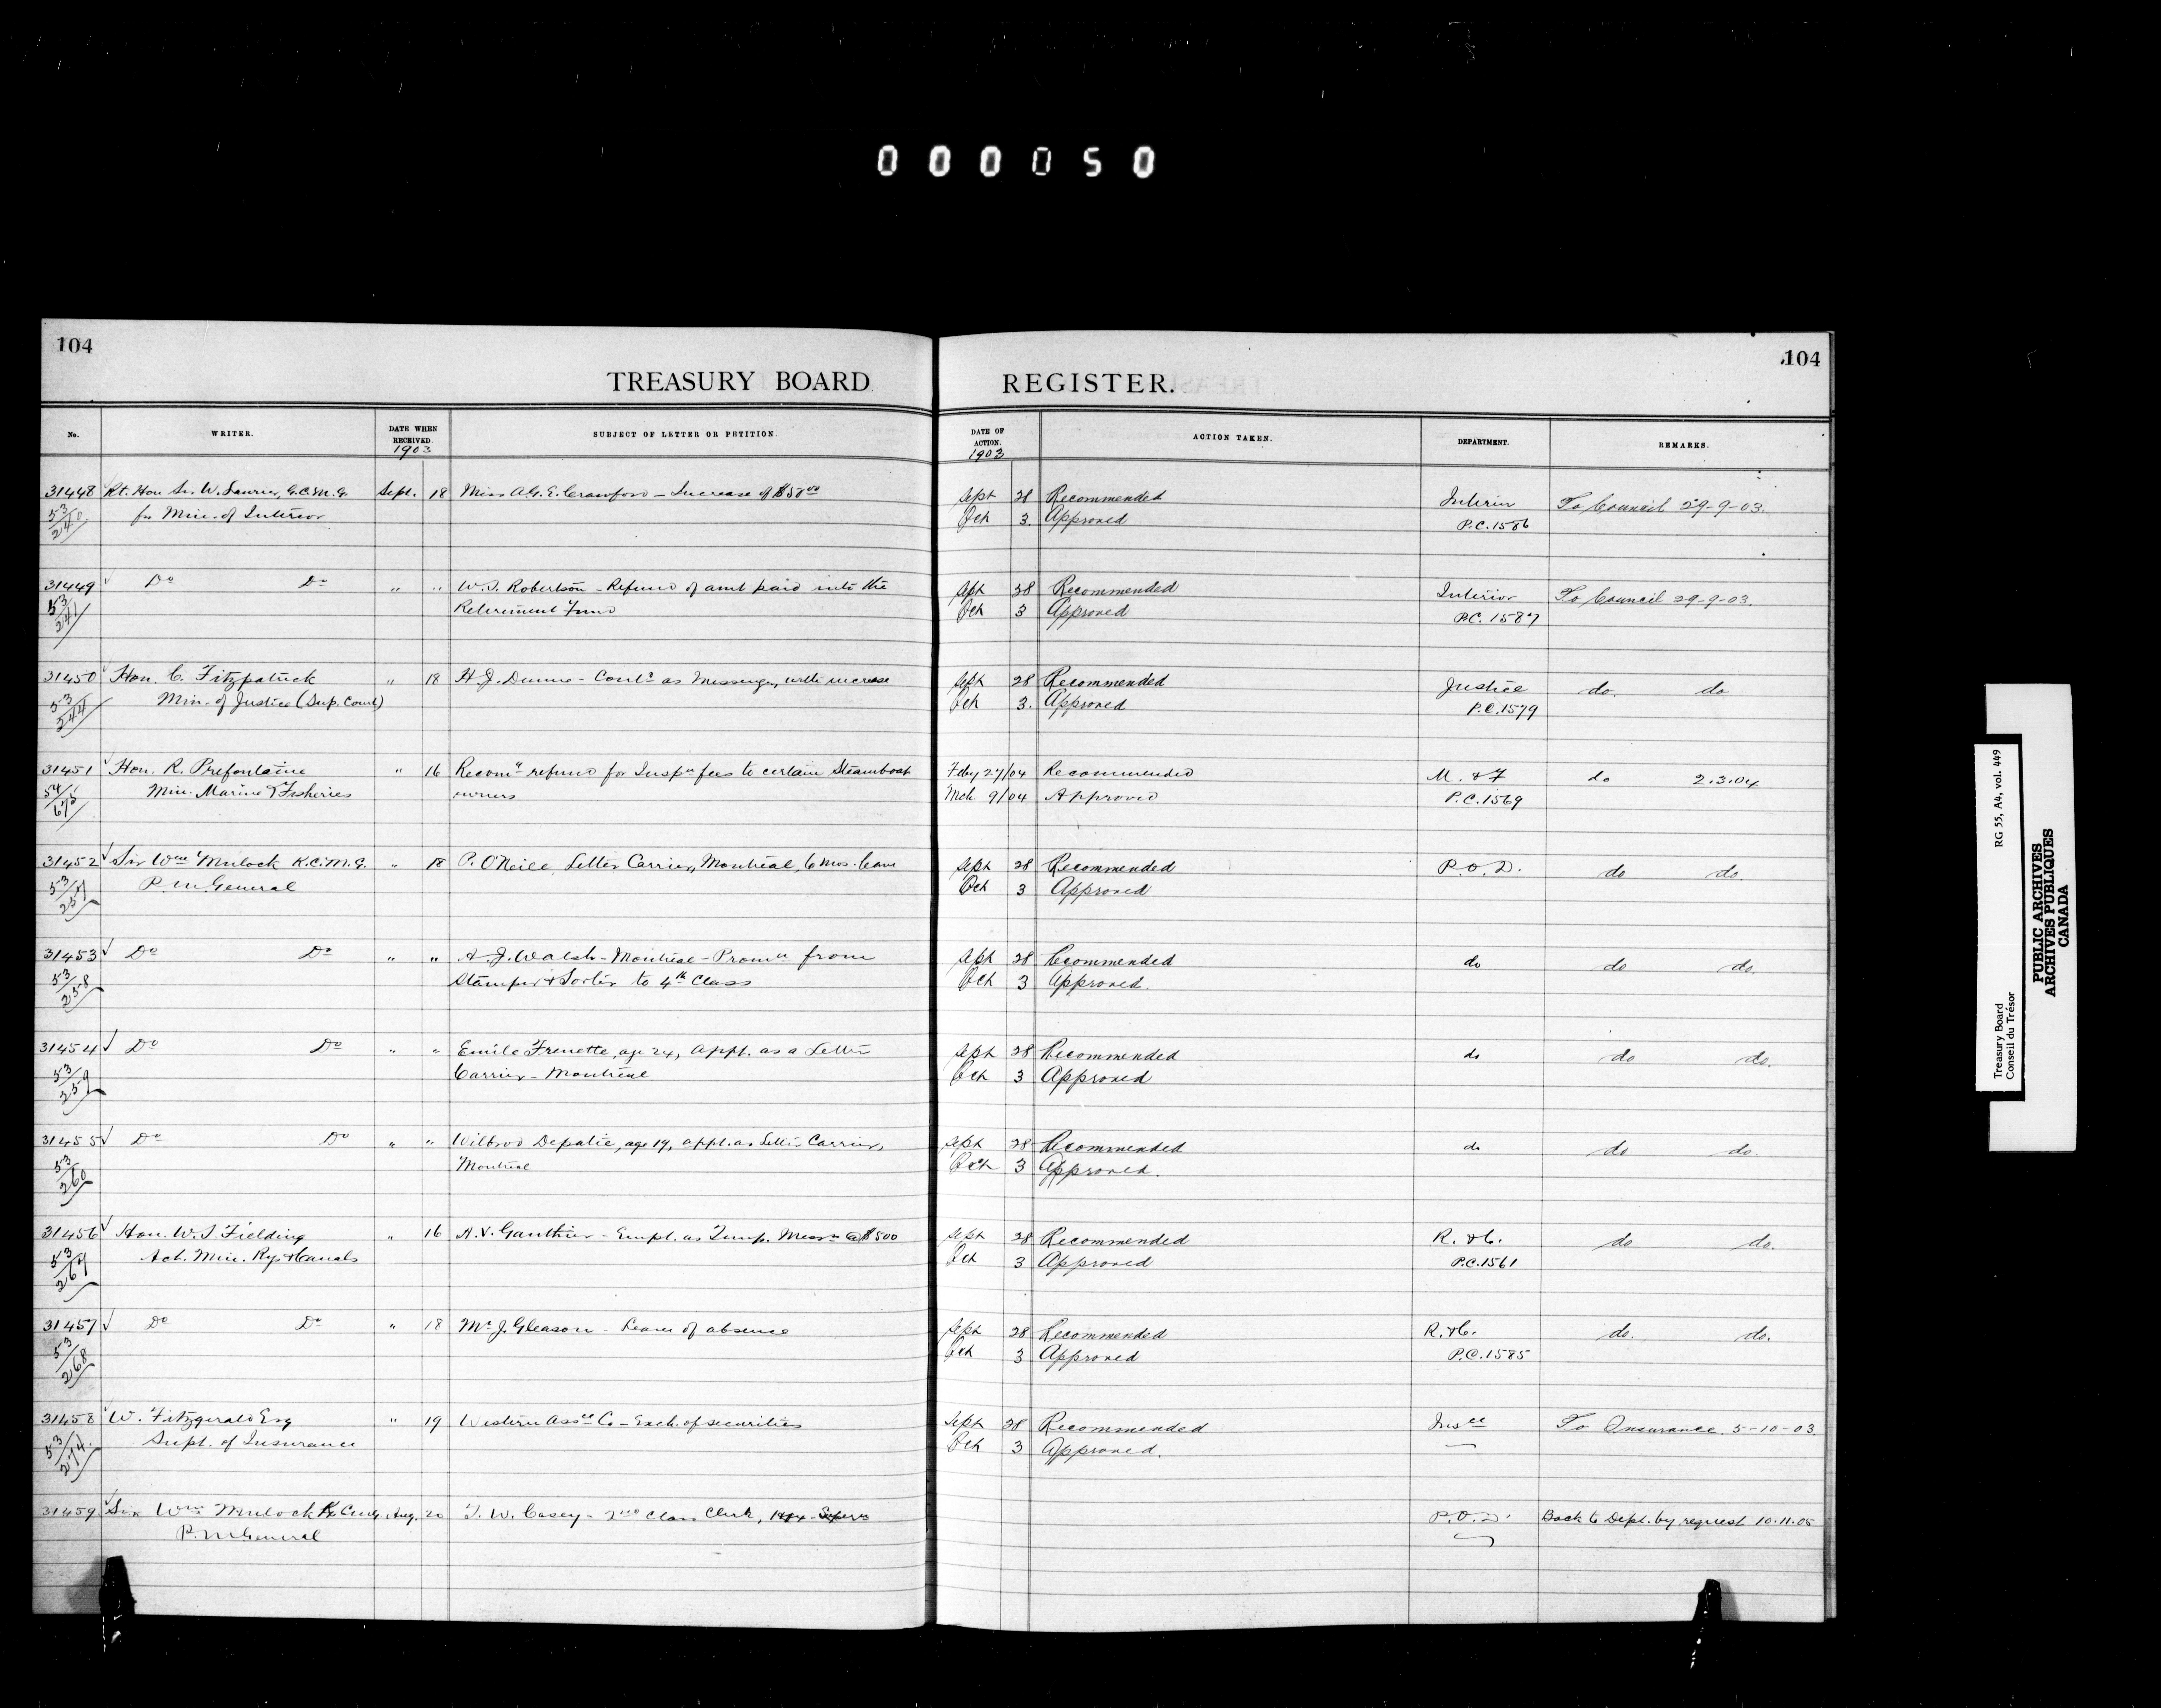 000050
104
TREASURY BOARD REGISTER.
104
No. WRITER. DATE WHEN RECEIVED. 1903 SUBJECT OF LETTER OR PETITION. DATE OF ACTION. 1903 ACTION TAKEN. DEPARTMENT. REMARKS.
31448 Rt. Hon Sir W. Laurier, G.C.M.G. Sept. 18 Miss A.G.E. Crawford - Increase of $50 00 Sept 28 Recommended Interior To Council 29-9-03.
53/240 for Min. of Interior Oct 3. Approved P.C. 1586
31449 Do Do " " W.S. Robertson - Refund of amt paid into the Sept 28 Recommended Interior To Council 29-9-03.
53/241 Retirement Fund Oct 3 Approved P.C. 1587
31450 Hon. C. Fitzpatrick " 18 H.J. Dunne - Contd as Messenger, with increase Sept 28 Recommended Justice do. do
53/244 Min. of Justice (Sup. Court) Oct 3. Approved P.C. 1579
31451 Hon. R. Prefontaine " 16 Recomn refund for Inspn fees to certain Steamboat Feby 27/04 Recommended M. & F do 2.3.04
54/675 Min. Marine & Fisheries owners Mch 9/04 Approved P.C. 1569
31452 Sir Wm Mulock K.C.M.G. " 18 P. O'Neill, Letter Carrier, Montreal, 6 mos. leave Sept 28 Recommended P.O.D. do do.
53/257 P.M. General Oct 3 Approved
31453 Do Do " " A.J. Walsh - Montreal - Promn from Sept 28 Recommended do do do.
53/258 Stamper & Sorter to 4th Class Oct 3 Approved.
31454 Do Do " " Emile Frenette, age 24, appt. as a Letter Sept 28 Recommended do do do.
53/259 Carrier - Montreal Oct 3 Approved
31455 Do Do " " Wilbrod Depatie, age 19, appt. as Letter Carrier, Sept 28 Recommended do do do
53/260 Montreal Oct 3 Approved.
31456 Hon. W.S. Fielding " 16 A.V. Gauthier - Empt. as Temp. Messr @ $500 Sept 28 Recommended R. & C. do do.
53/267 Act. Min. Rys & Canals Oct 3 Approved P.C. 1561
31457 Do Do " 18 Mr J. Gleason - Leave of absence Sept 28 Recommended R. & C. do. do.
53/268 Oct 3 Approved P.C. 1585
31458 W. Fitzgerald Esq " 19 Western Assce Co - Exch. of securities Sept 28 Recommended Insce To Insurance 5-10-03.
53/274. Supt. of Insurance Oct 3 Approved.
31459 Sir Wm Mulock K.C.M.G. Aug. 20 T.W. Casey - 2nd Class Clerk, P.O.D. Back to Dept. by request 10.11.05
P.M. General
Treasury Board RG 55, A4, vol. 449
Conseil du Trésor
PUBLIC ARCHIVES
ARCHIVES PUBLIQUES
CANADA